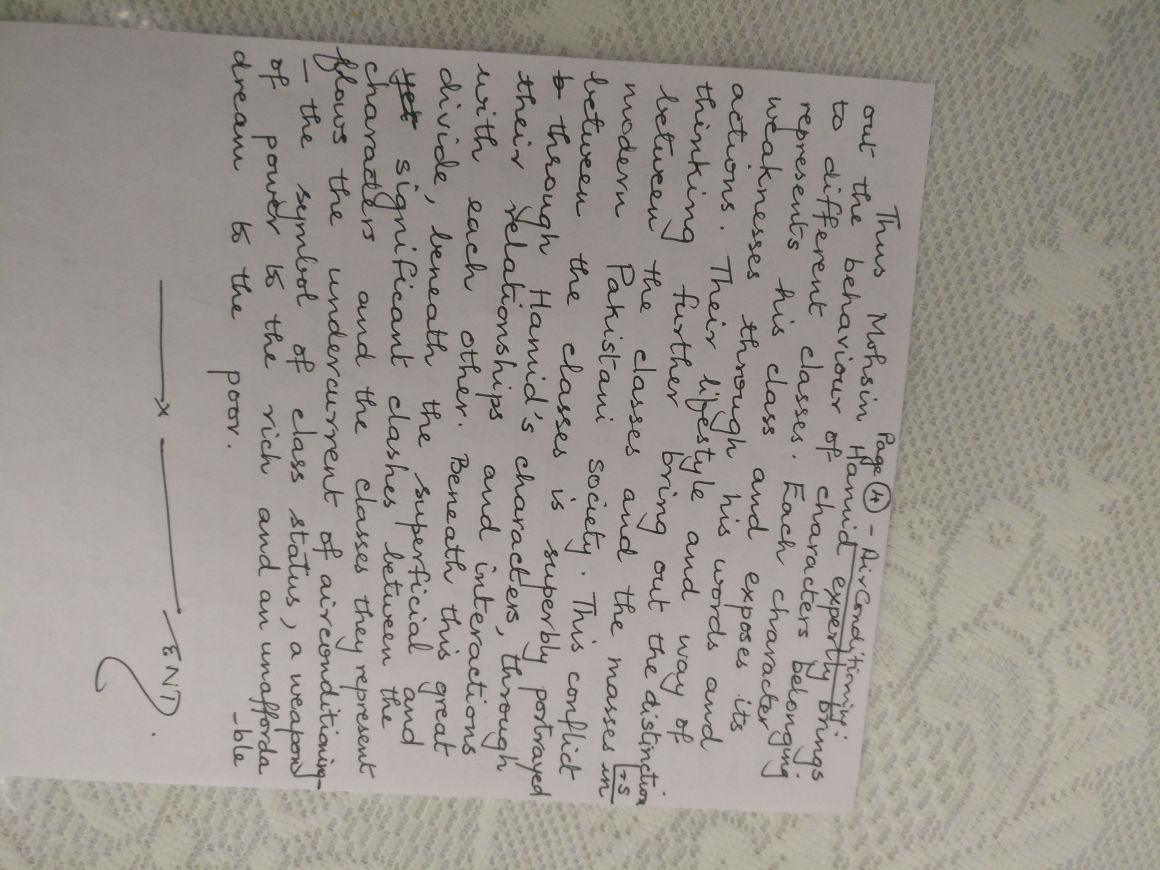 Page 4 - AirConditioning:
Thus Mohsin Hamid expertly brings
out the behaviour of characters belonging
to different classes. Each character
represents his class and exposes its
weaknesses through his words and
actions. Their lifestyle and way of
thinking further bring out the distinction
-s
between the classes and the masses in
modern Pakistani society. This conflict
between the classes is superbly portrayed
b through Hamid's characters, through
their relationships and interactions
with each other. Beneath this great
divide, beneath the superficial and
yet significant clashes between the
characters and the classes they represent
flows the undercurrent of airconditioning-
- the symbol of class status, a weapon
of power to the rich and an unafforda
-ble
dream to the poor.
x END.